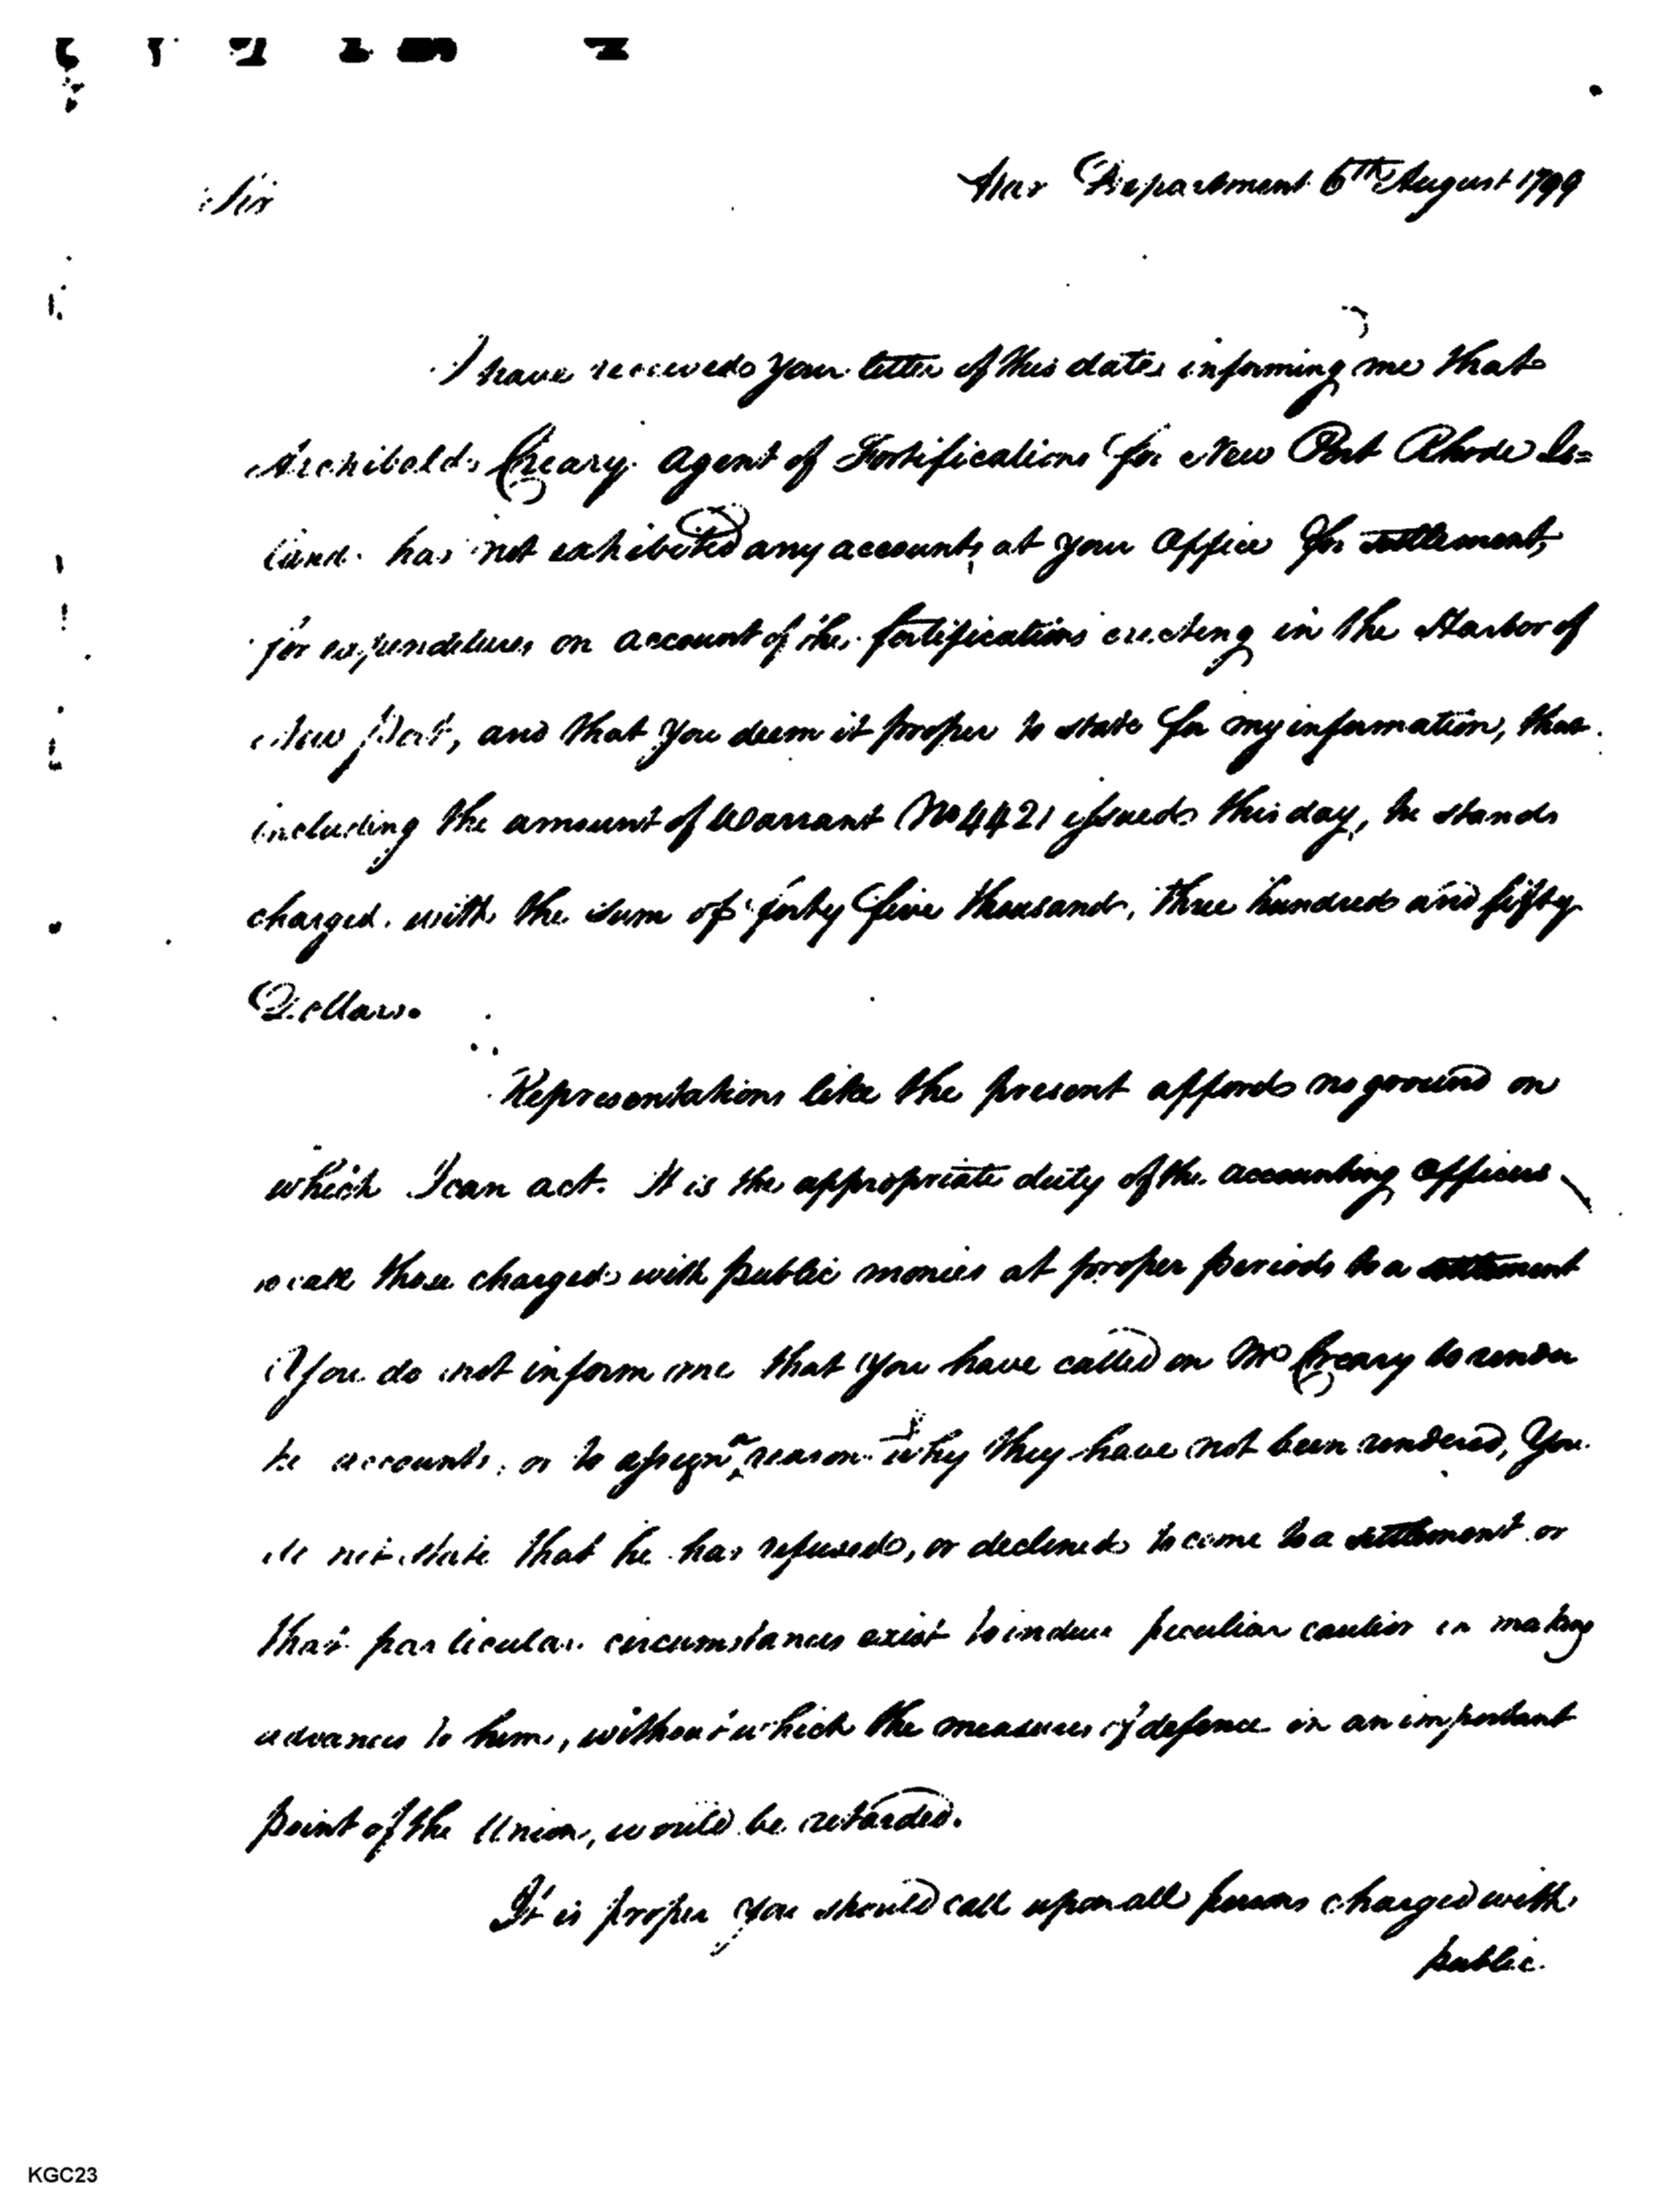 War Department 6th August 1799
Sir
I have received your letter of this date informing me that
Archibald Creary agent of Fortifications for New Port Rhode Is=
land has not exhibited any accounts, at your office for settlement,
for expenditures on account of the fortifications erecting in the Harbor of
New Port, and that you deem it proper to state for my information, that
including the amount of Warrant No 4421 issued this day, he stands
charged with the sum of forty five thousand, three hundred and fifty
Dollars.
Representations like the present affords no ground on
which I can act. It is the appropriate duty of the accounting officers
to call those charged with public monies at proper periods to a settlement
You do not inform me that you have called on Mr Creary to render
accounts, or to assign a reason why they have not been rendered, You
do not state that he has refused, or declined to come to a settlement or
that particular circumstances exist to induce peculiar caution in making
advances to him, without which the measures of defence in an important
point of the Union, would be retarded.
It is proper you should call upon all persons charged with
public
KGC23